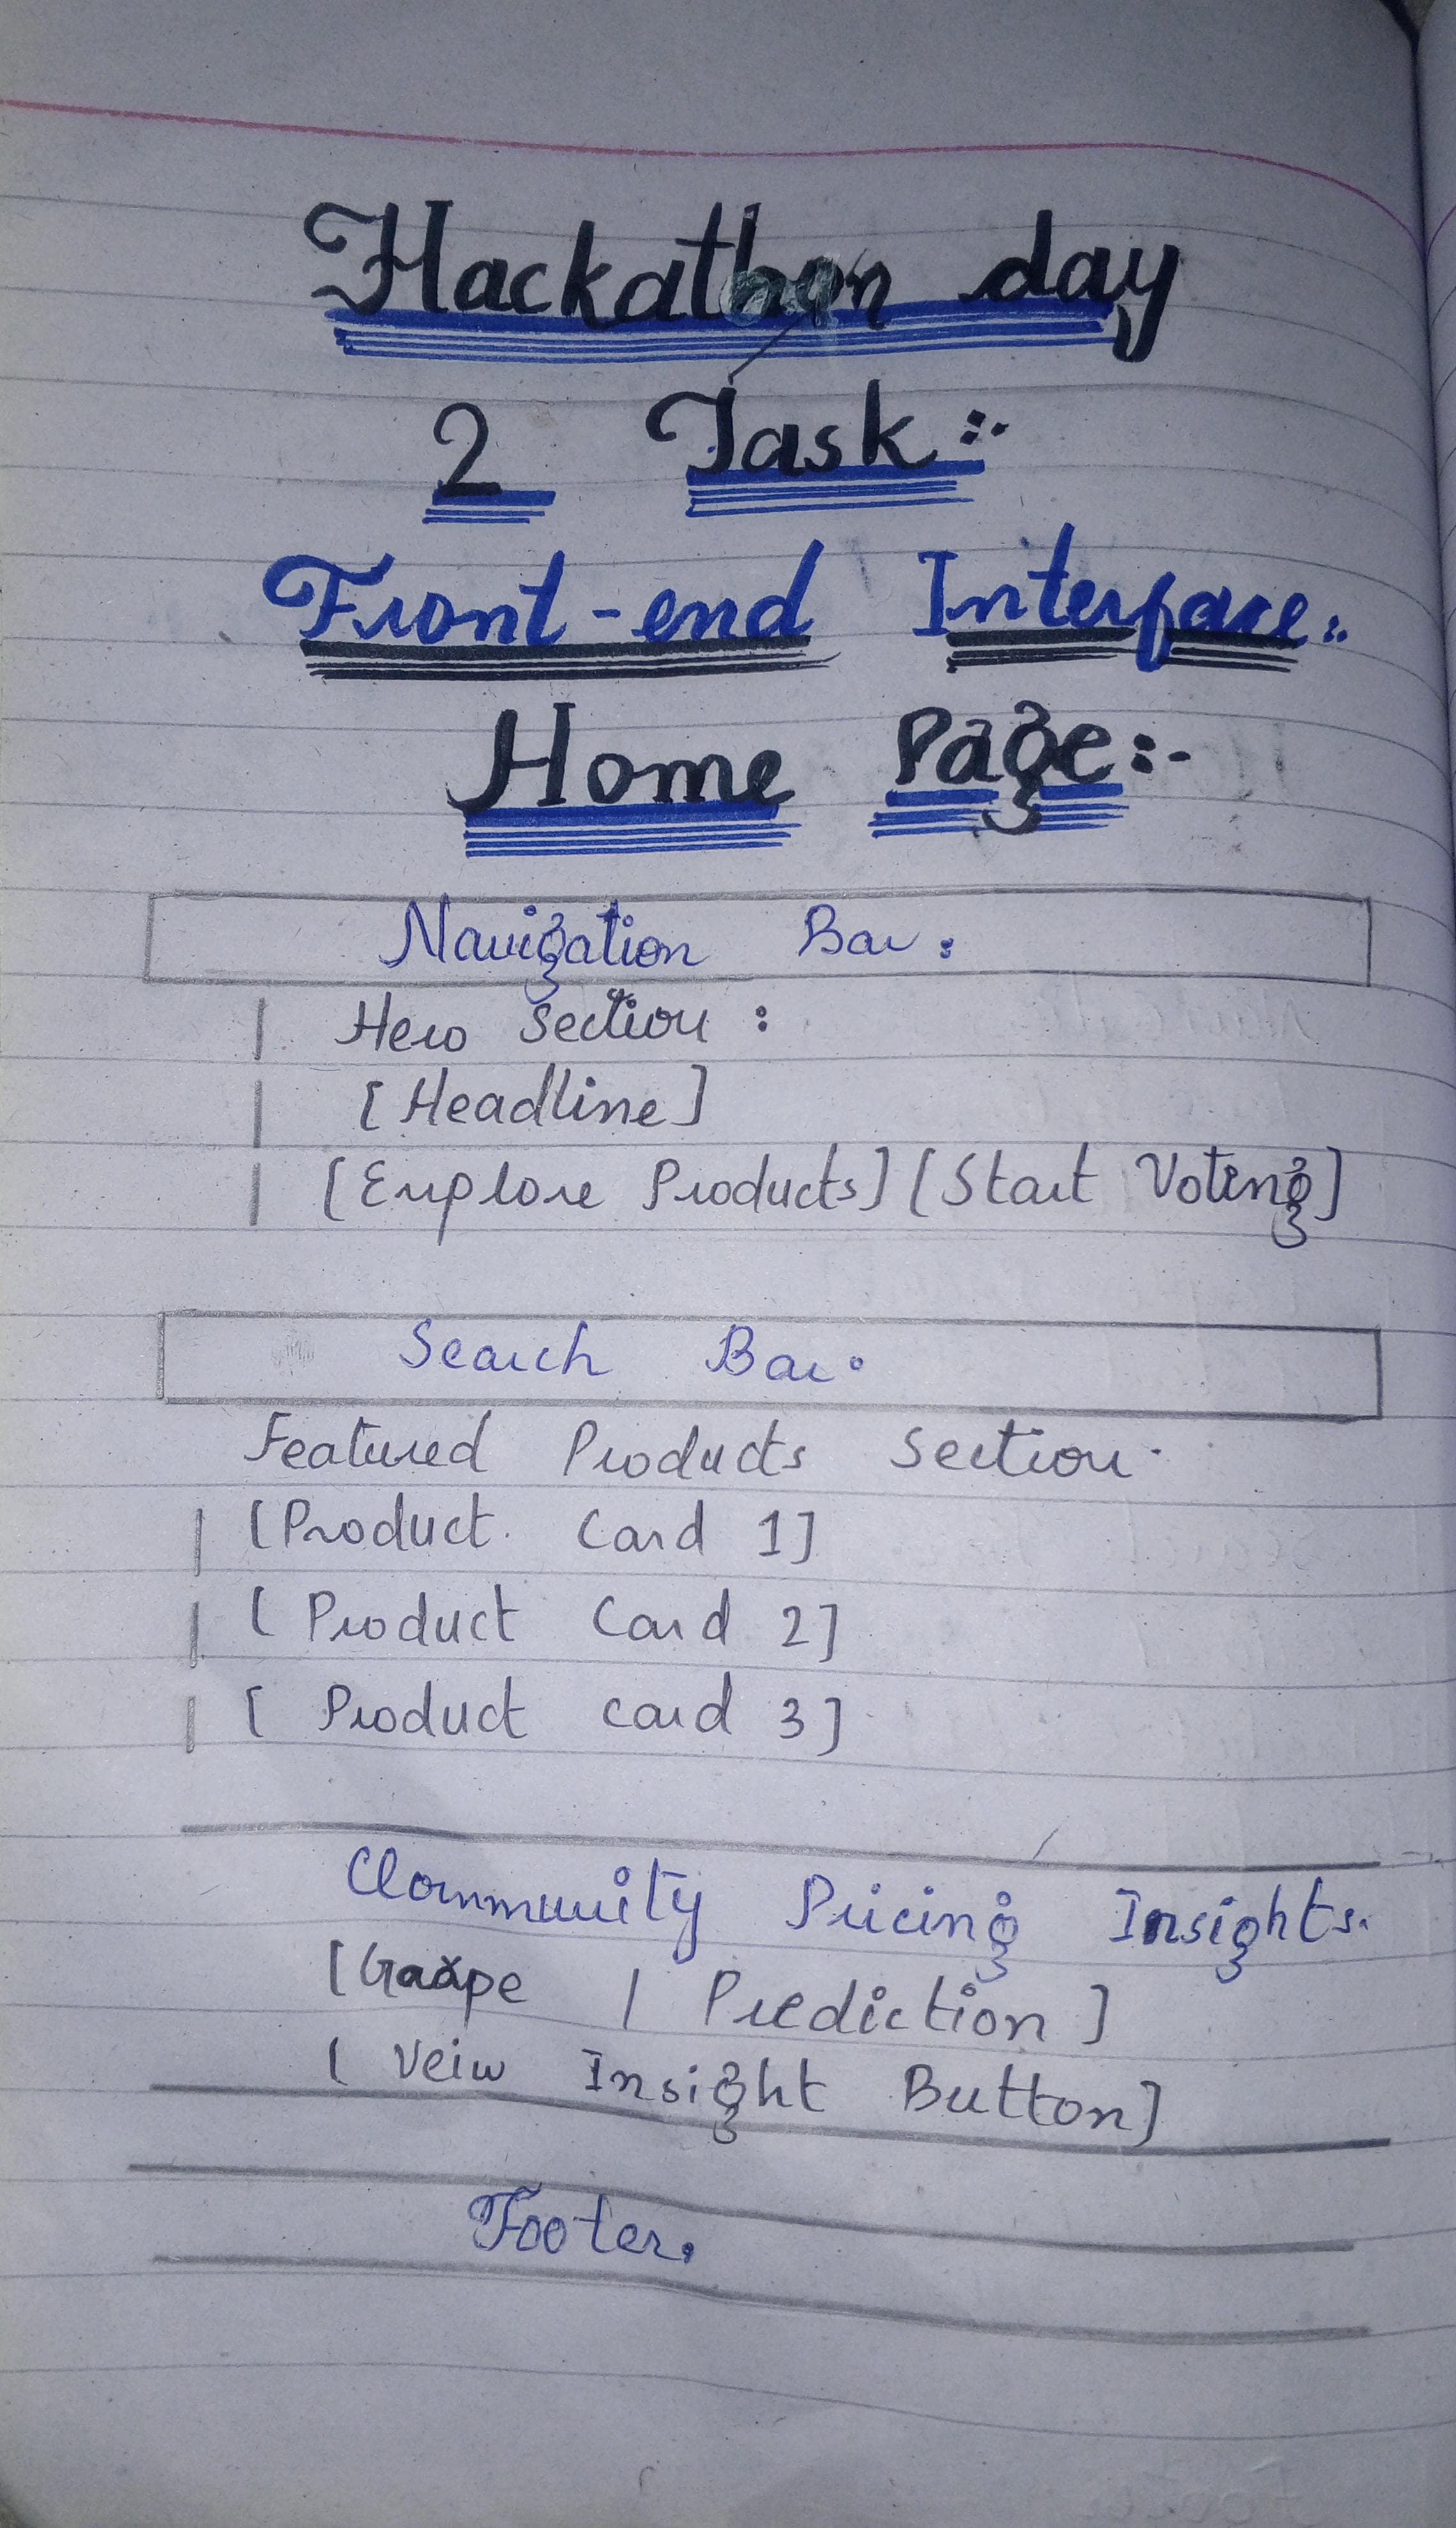 Hackathon day
2 Task :-
Front-end Interface :-
Home Page :-
Navigation Bar :
| Hero Section :
| [Headline]
| [Explore Products] [Start Voting]
Search Bar :
Featured Products Section.
| [Product Card 1]
| [Product Card 2]
| [Product card 3]
Community Pricing Insights.
[ | Prediction]
[Veiw Insight Button]
Footer.